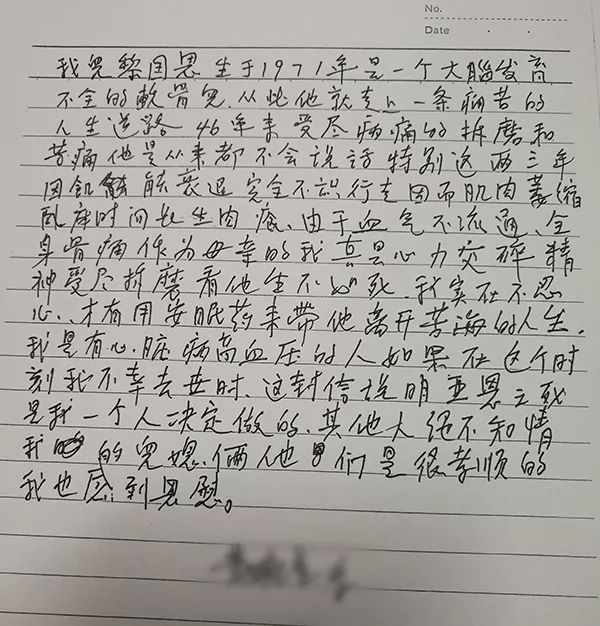 No.
Date
我兒黎国恩生于1971年是一个大腦发育
不全的軟骨兒.从此他就走上一条痛苦的
人生道路46年来受尽病痛的折磨和
苦痛他是从来都不会说話特别这两三年
因机能衰退完全不识行走因而肌肉萎縮
臥床时间长生肉瘡、由于血气不流通、全
身骨痛作为母亲的我真是心力交碎精
神受尽折磨看他生不如死.我实在不忍
心、才有用安眠药来带他离开苦海的人生.
我是有心.脏病高血压的人如果在这个时
刻我不幸去世时.这封信说明亚恩之死
是我一个人决定做的、其他人绝不知情
我的兒媳.俩他们是很孝順的
我也感到恩慰。